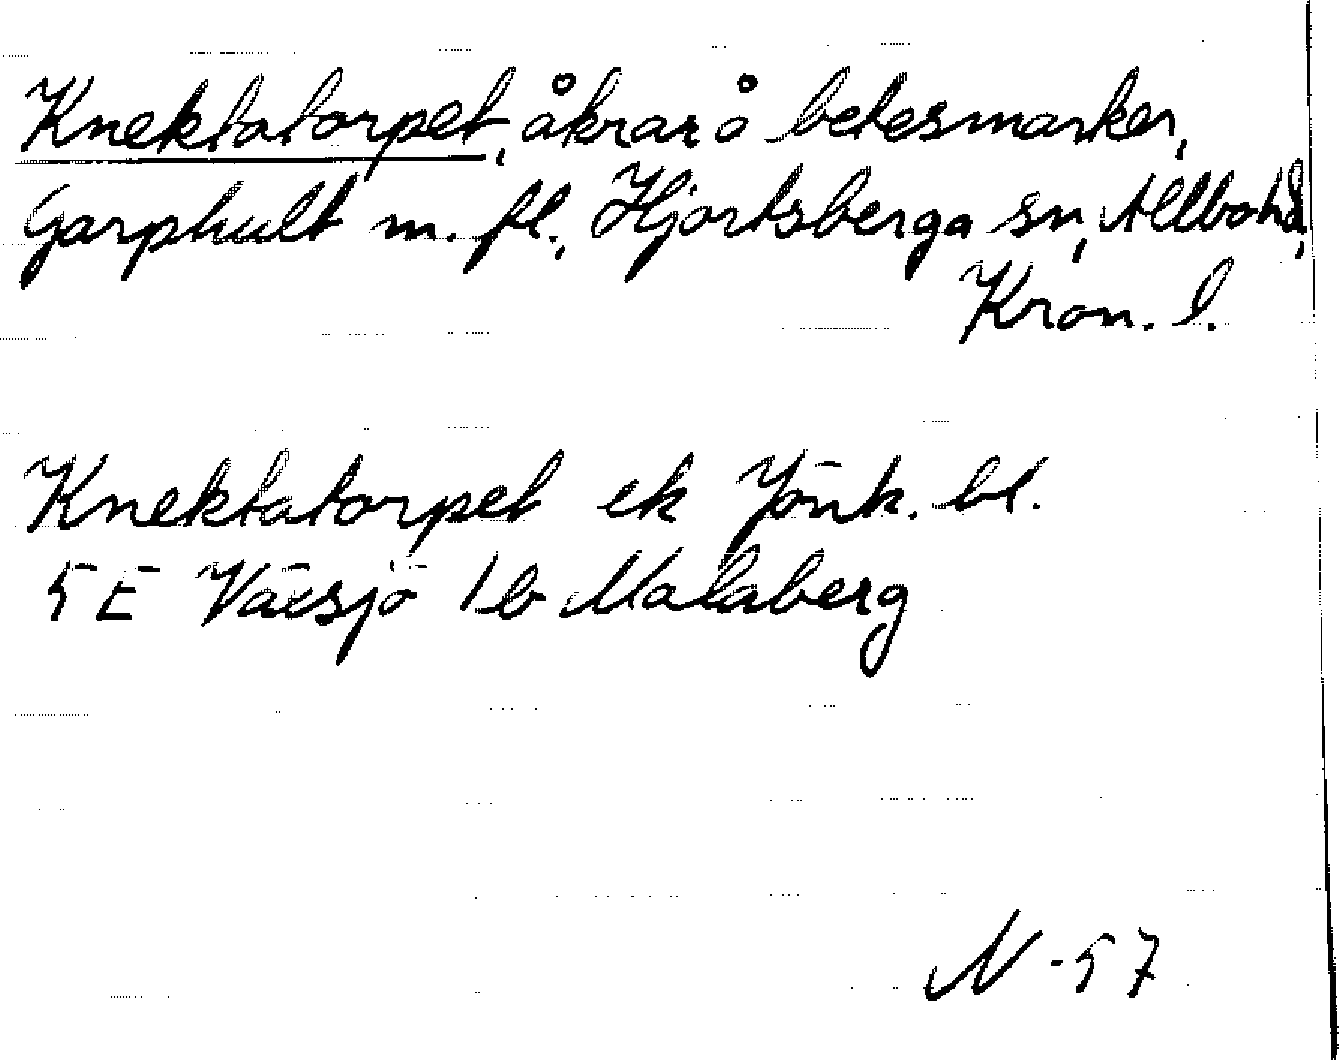 Knektatorpet, åkrar å betesmarker,
Garphult m. fl., Hjortsberga sn, Allbo hd,
Kron. l.
Knektatorpet ek Jönk. bl.
5E Växsjö 1b Malaberg
N-57